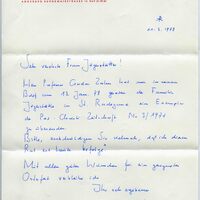 20.3.1978
Sehr verehrte Frau Jägerstätter!
Herr Professor Gordon Zahn bat uns in seinem
Brief vom 13. Jän. 78 gebeten, der Familie
Jägerstätter in St. Radegund ein Exemplar
der Pax-Christi Zeitschrift No 3/1977
zu übersenden.
Bitte, entschuldigen Sie vielmals, daß ich dieser
Bitte erst heute
Mit allen guten Wünschen für ein gesegnetes
Osterfest verbleibe ich
Ihr sehr ergebener